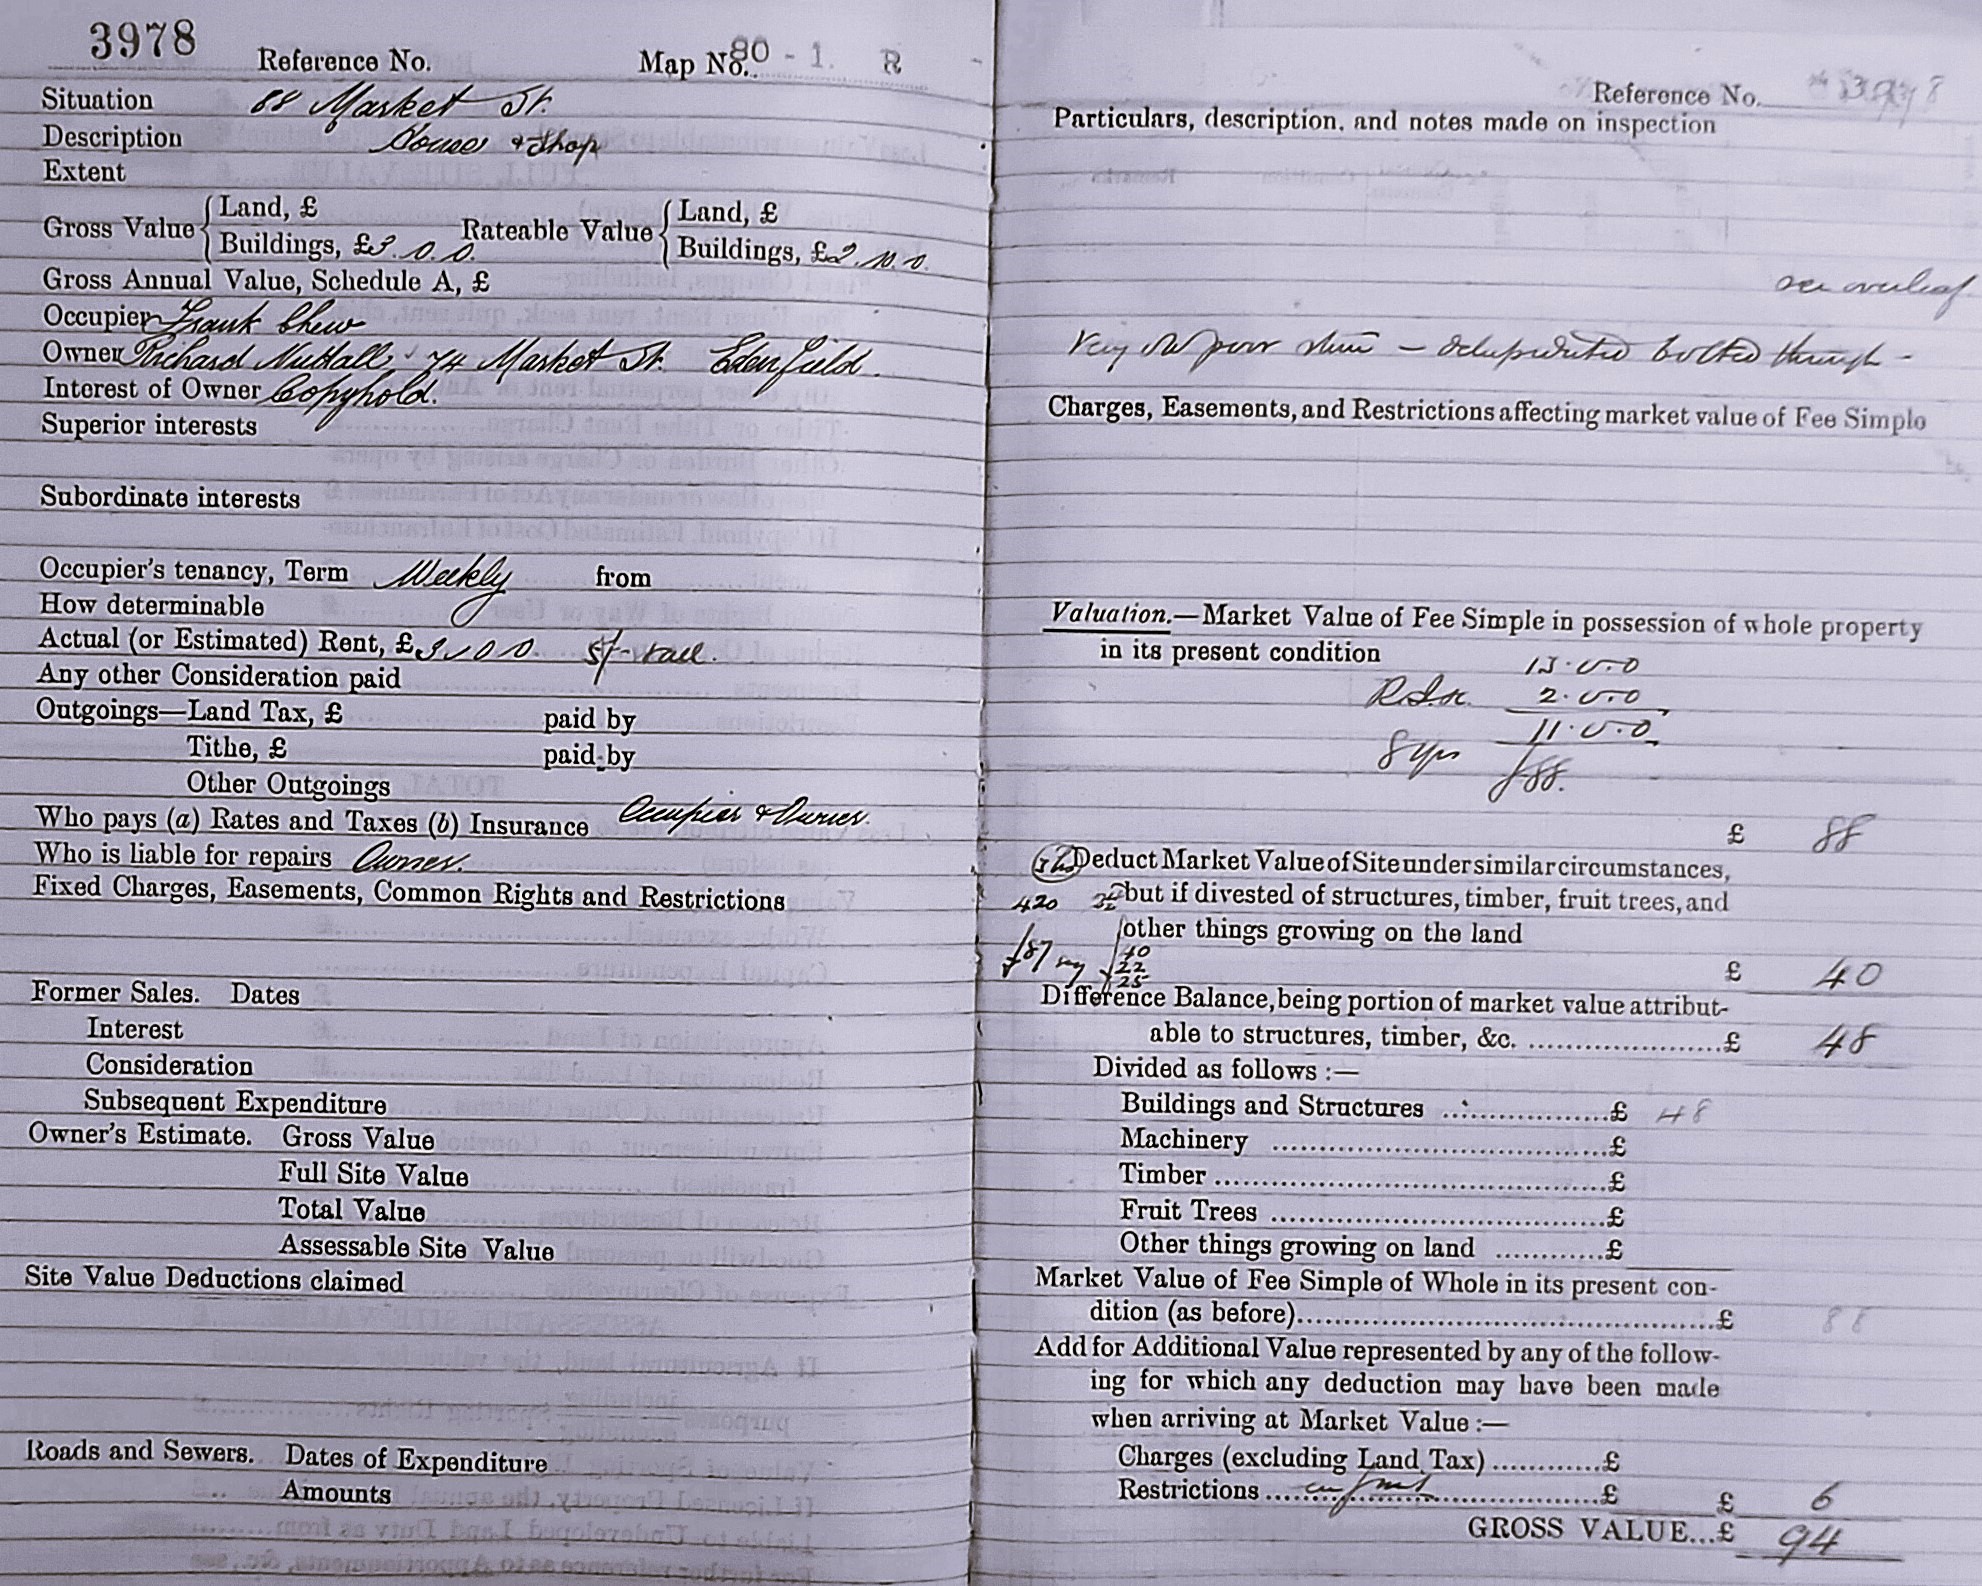 3978
Reference No. Map No. 80 - 1. R
Situation 88 Market St.
Description House & Shop
Extent
Gross Value { Land, £ Rateable Value { Land, £
Buildings, £3. 0. 0. Buildings, £2. 10. 0.
Gross Annual Value, Schedule A, £
Occupier Frank Chew
Owner Richard Nuttall, 74 Market St. Edenfield.
Interest of Owner Copyhold.
Superior interests
Subordinate interests
Occupier's tenancy, Term Weekly from
How determinable
Actual (or Estimated) Rent, £ 5/-
Any other Consideration paid
Outgoings—Land Tax, £ paid by
Tithe, £ paid by
Other Outgoings
Who pays (a) Rates and Taxes (b) Insurance Occupier & Owner.
Who is liable for repairs Owner.
Fixed Charges, Easements, Common Rights and Restrictions
Former Sales. Dates
Interest
Consideration
Subsequent Expenditure
Owner's Estimate. Gross Value
Full Site Value
Total Value
Assessable Site Value
Site Value Deductions claimed
Roads and Sewers. Dates of Expenditure
Amounts
Reference No. 3978
Particulars, description, and notes made on inspection
see overleaf
Very old poor – dilapidated bolted through –
Charges, Easements, and Restrictions affecting market value of Fee Simple
Valuation.—Market Value of Fee Simple in possession of whole property
in its present condition
13.0.0
2.0.0
11.0.0
8 yrs £88.
£ 88
Deduct Market Value of Site under similar circumstances,
420 but if divested of structures, timber, fruit trees, and
other things growing on the land
£87 say 40
22
25
£ 40
Difference Balance, being portion of market value attribut-
able to structures, timber, &c. ........ £ 48
Divided as follows :—
Buildings and Structures ........ £ 48
Machinery ........ £
Timber ........ £
Fruit Trees ........ £
Other things growing on land ........ £
Market Value of Fee Simple of Whole in its present con-
dition (as before) ........ £ 88
Add for Additional Value represented by any of the follow-
ing for which any deduction may have been made
when arriving at Market Value :—
Charges (excluding Land Tax) ........ £
Restrictions ........ £ £ 6
GROSS VALUE...£ 94